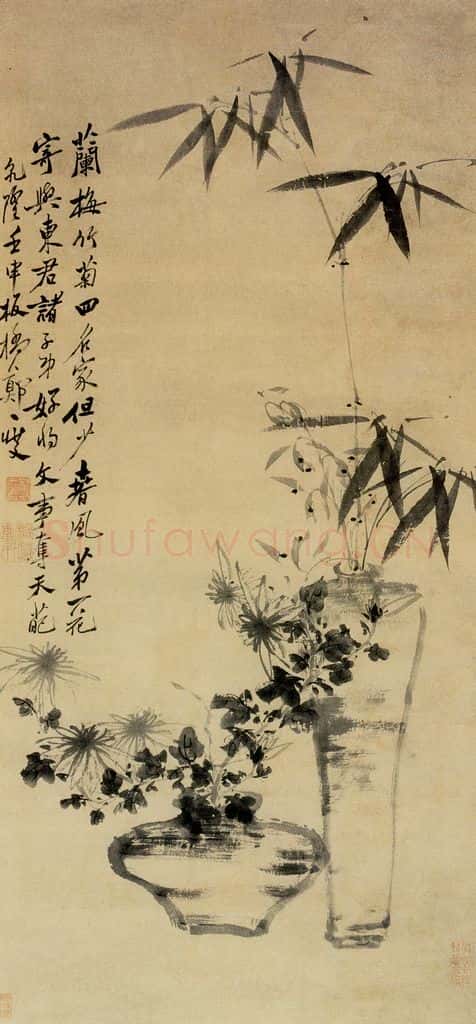 蘭梅竹菊四名家但少春風第一花
寄與東君諸子弟好將文事奪天葩
乾隆壬申板橋鄭燮
Shufawang.CN